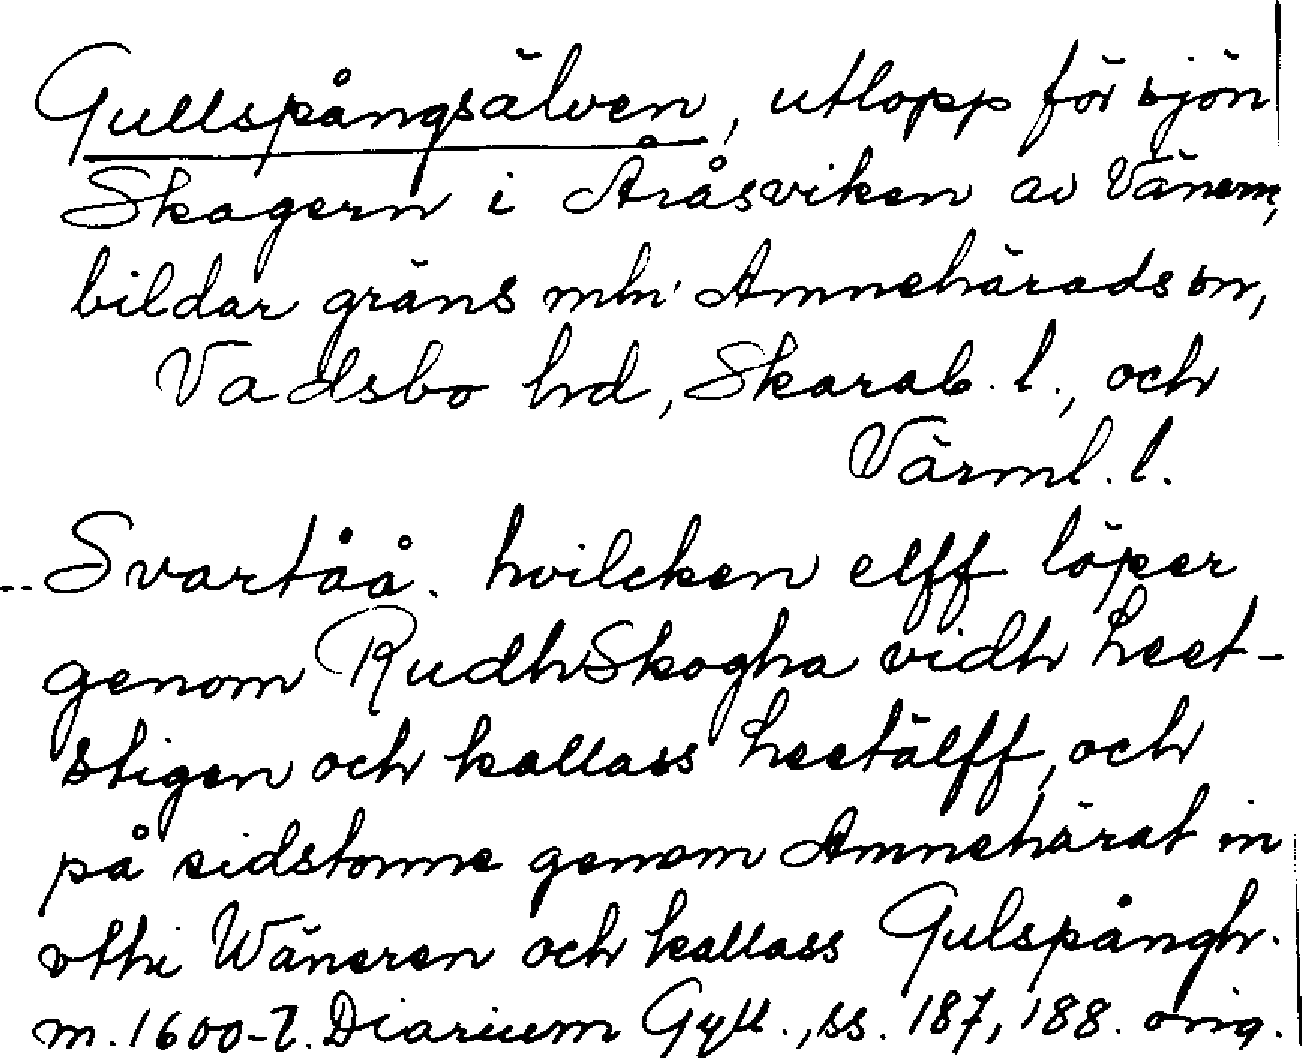 Gullspångsälven, utlopp för sjön
Skagern i Åråsviken av Vänern,
bildar gräns mln Amnehärads sn,
Vadsbo hd, Skarab. l., och
Värml. l.
-- Svartåå. hvilcken elff löper
genom RudhSkogha vidh heet-
stigen och kallass heetälff, och
på sidstonne genom Amnehärat in
vthi Wäneren och kallass Gulspångh.
m. 1600-t. Diarium Gyll., ss. 187, 188. orig.